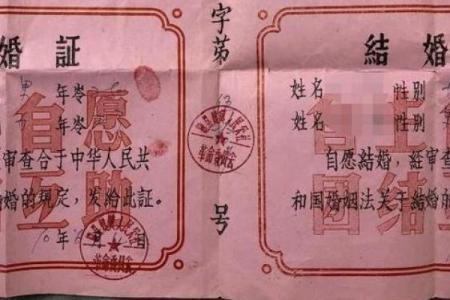 婚証
年岺
年岺
审查合于中华人民共
婚的规定，发给此証。
10年
日
自愿
互助
革命委員会
字第
号
革命委員会
結婚
姓名 性别
姓名 性别
自愿結婚，经审查
和国婚姻法关于結婚的
自主
团结